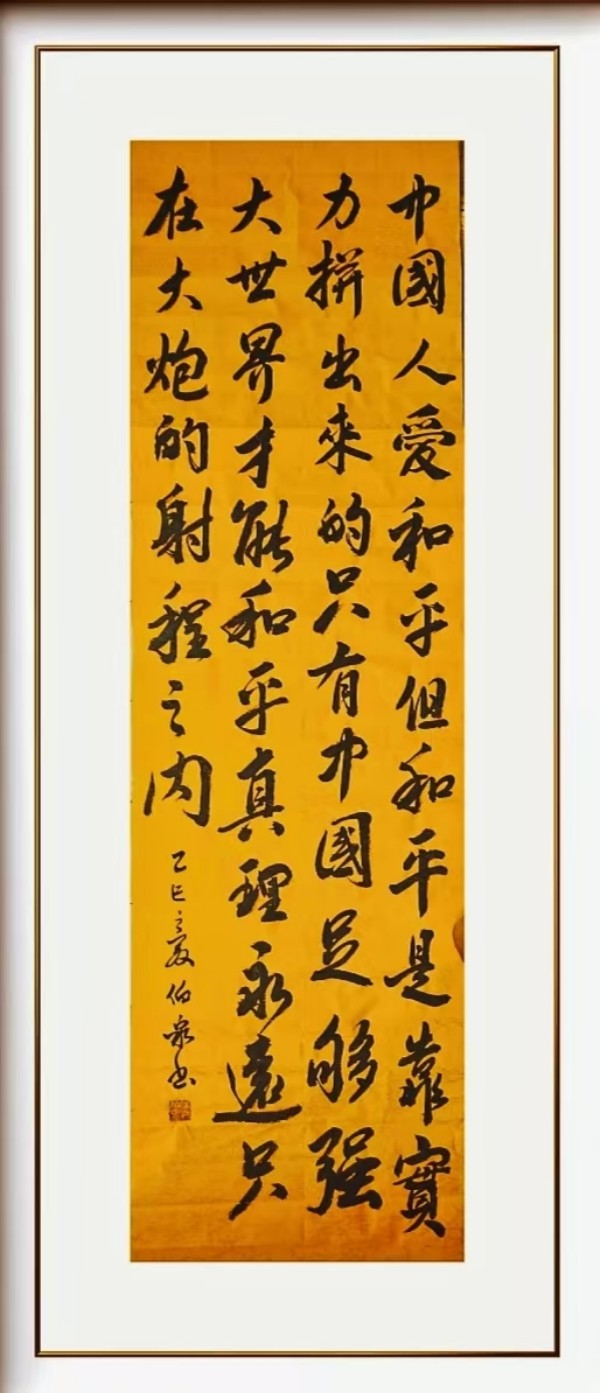 中國人愛和平但和平是靠實
力拼出來的只有中國足够强
大世界才能和平真理永遠只
在大炮的射程之内
乙巳之夏伯泉书